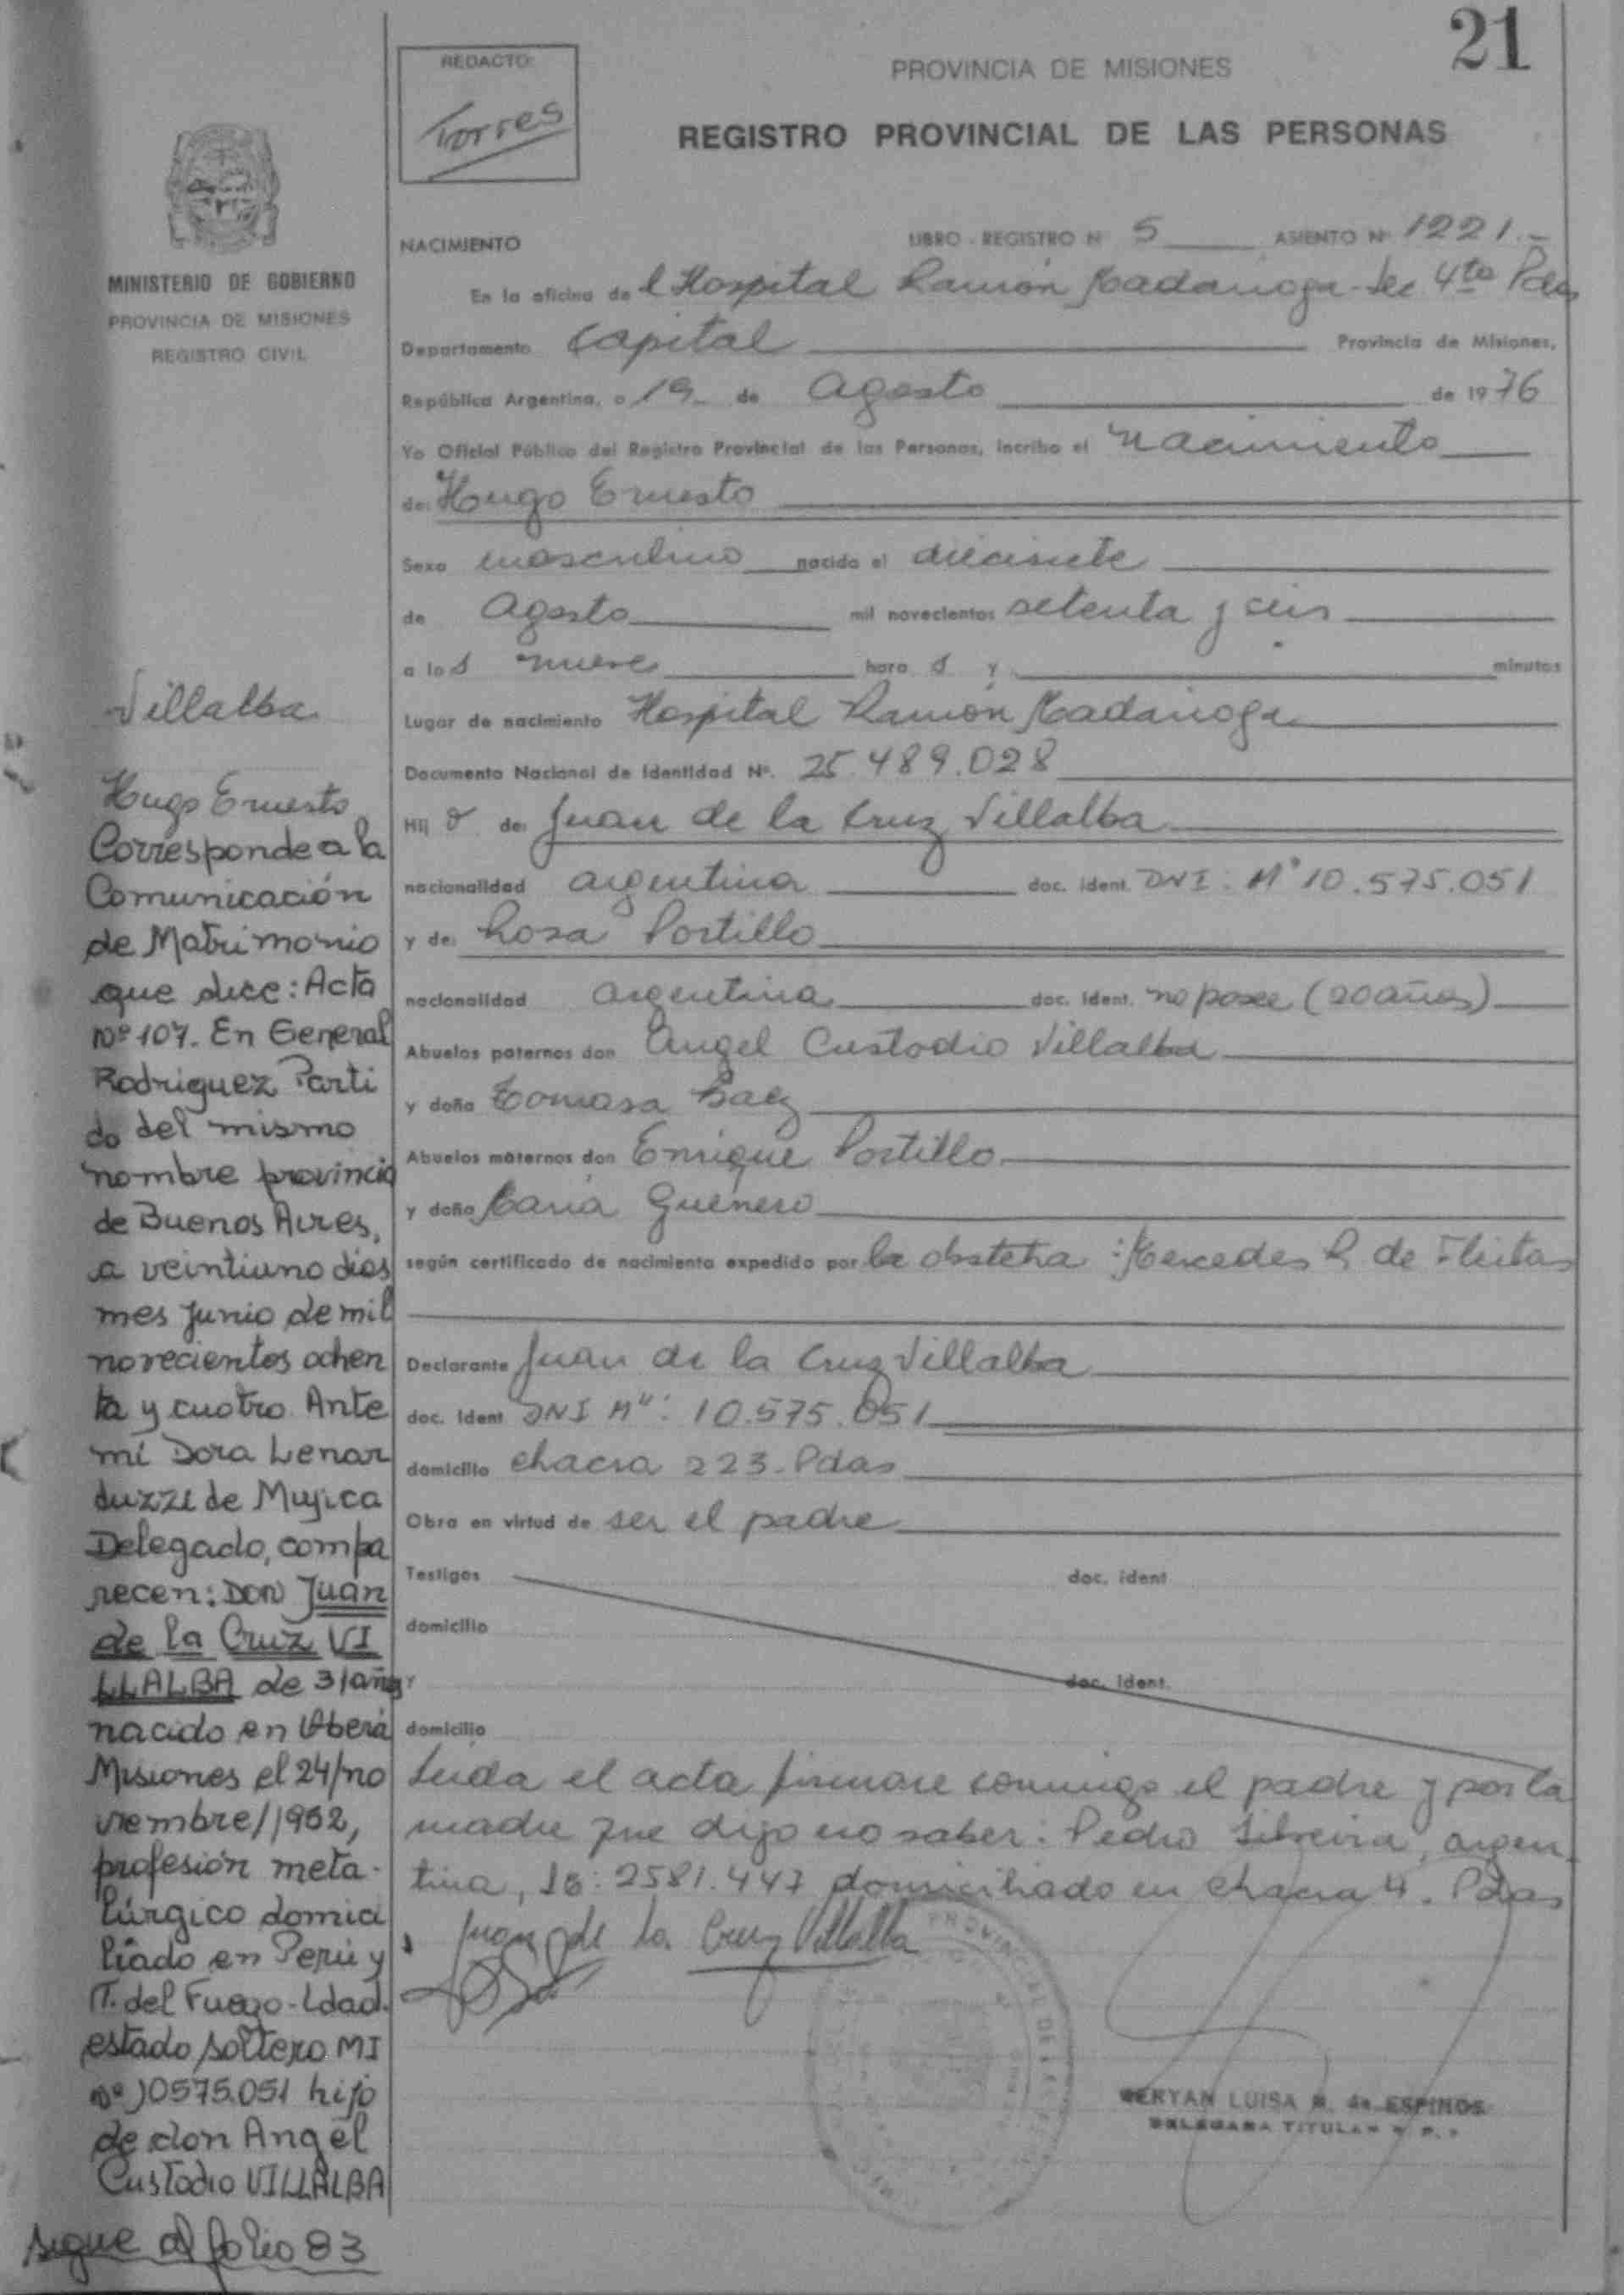 21
REDACTO:
Torres
PROVINCIA DE MISIONES
REGISTRO PROVINCIAL DE LAS PERSONAS
MINISTERIO DE GOBIERNO
PROVINCIA DE MISIONES
REGISTRO CIVIL
NACIMIENTO
LIBRO - REGISTRO Nº 5 ASIENTO Nº 1221.-
En la oficina de l Hospital Ramón Madariaga - Sec 4ta Pdas
Departamento Capital Provincia de Misiones,
República Argentina, a 19 de Agosto de 1976
Yo Oficial Público del Registro Provincial de las Personas, incribo el nacimiento
de: Hugo Ernesto
Sexo masculino nacido el diecisiete
de Agosto mil novecientos setenta y seis
a las nueve hora s y minutos
Lugar de nacimiento Hospital Ramón Madariaga
Documento Nacional de Identidad Nº. 25.489.028
Hij o de: Juan de la Cruz Villalba
nacionalidad argentina doc. ident. DNI. Mº 10.575.051
y de: Rosa Portillo
nacionalidad argentina doc. ident. no posee (20 años)
Abuelos paternos don Angel Custodio Villalba
y doña Tomasa Baez
Abuelos maternos don Enrique Portillo
y doña Maria Guerrero
según certificado de nacimiento expedido por la obstetra: Mercedes R. de Fleitas
Declarante Juan de la Cruz Villalba
doc. Ident DNI Mº: 10.575.051
domicilio chacra 223 - Pdas
Obra en virtud de ser el padre
Testigos doc. ident.
domicilio
Y doc. ident.
domicilio
Leida el acta firmare conmigo el padre y por la
madre que dijo no saber: Pedro Silveira, argen
tina, 2581.447 domiciliado en chacra 4. Pdas
Juan de la Cruz Villalba
PROVINCIAL DE LAS
MERYAN LUISA R. de ESPINOS
DELEGADA TITULAR
Villalba
Hugo Ernesto
Corresponde a la
Comunicación
de Matrimonio
que dice: Acta
Nº 107. En General
Rodriguez Parti
do del mismo
nombre provincia
de Buenos Aires,
a veintiuno dias
mes Junio de mil
novecientos ochen
ta y cuatro. Ante
mí Dora Lenar
duzzi de Mujica
Delegado, compa
recen: DON Juan
de la Cruz VI
LLALBA de 31 años
nacido en Oberá
Misiones el 24/no
viembre/1952,
profesión meta-
lúrgico domici
liado en Perú y
T. del Fuego - Ldad.
estado soltero MI
Nº 10575.051 hijo
de don Angel
Custodio VILLALBA
sigue al folio 83